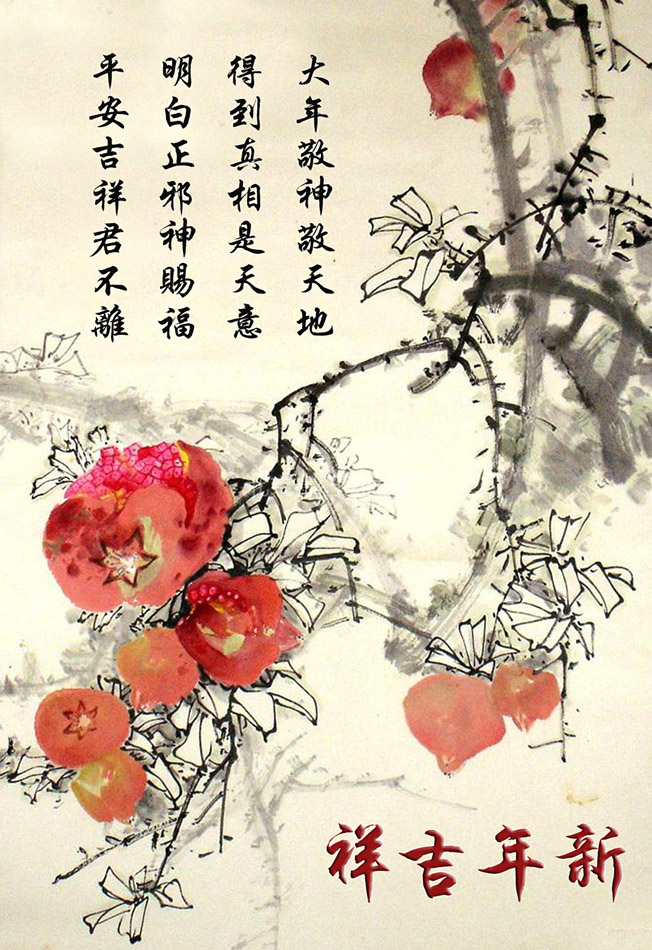 大年敬神敬天地
得到真相是天意
明白正邪神賜福
平安吉祥君不離
新年吉祥